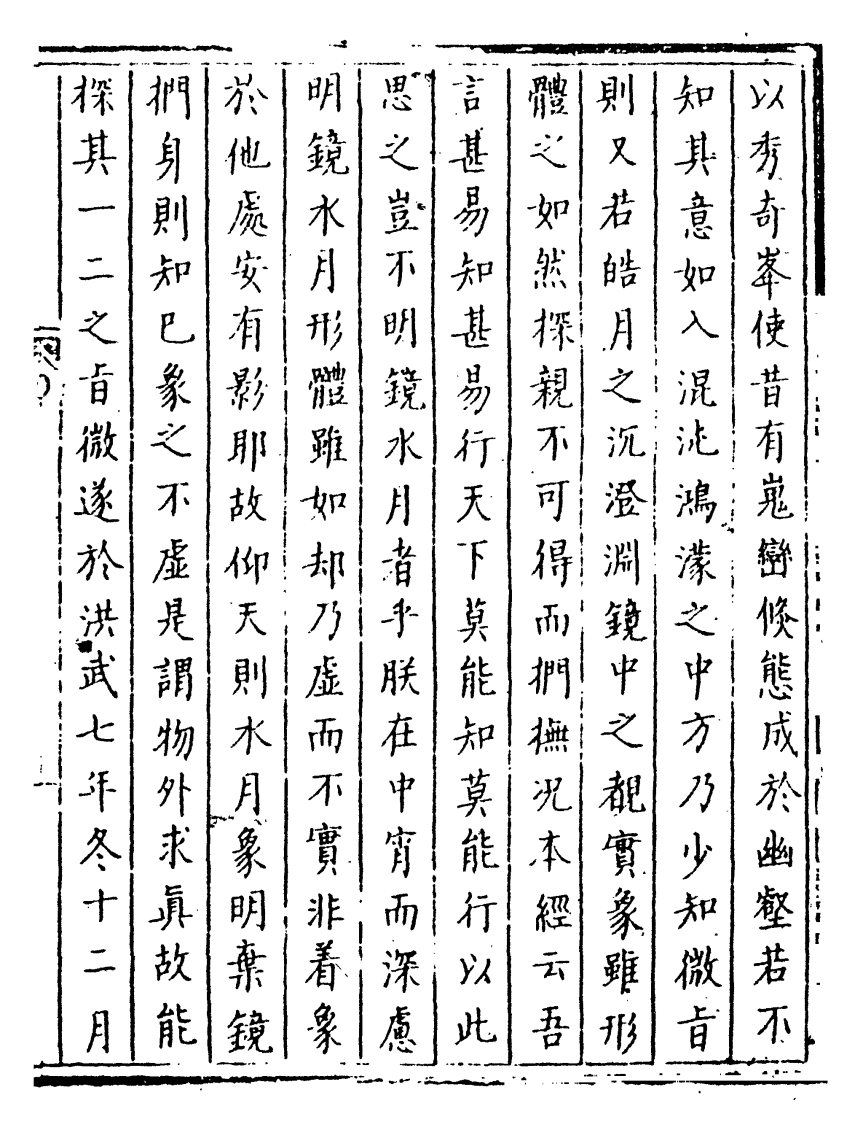 以秀奇峯使昔有嵬巒倏態成於幽壑若不
知其意如入混沌鴻濛之中方乃少知微旨
則又若皓月之沉澄淵鏡中之覩實象雖形
體之如然探親不可得而捫撫况本經云吾
言甚易知甚易行天下莫能知莫能行以此
思之豈不明鏡水月者乎朕在中宵而深慮
明鏡水月形體雖如却乃虛而不實非着象
於他處安有影耶故仰天則水月象明棄鏡
捫身則知已象之不虛是謂物外求眞故能
探其一二之旨微遂於洪武七年冬十二月